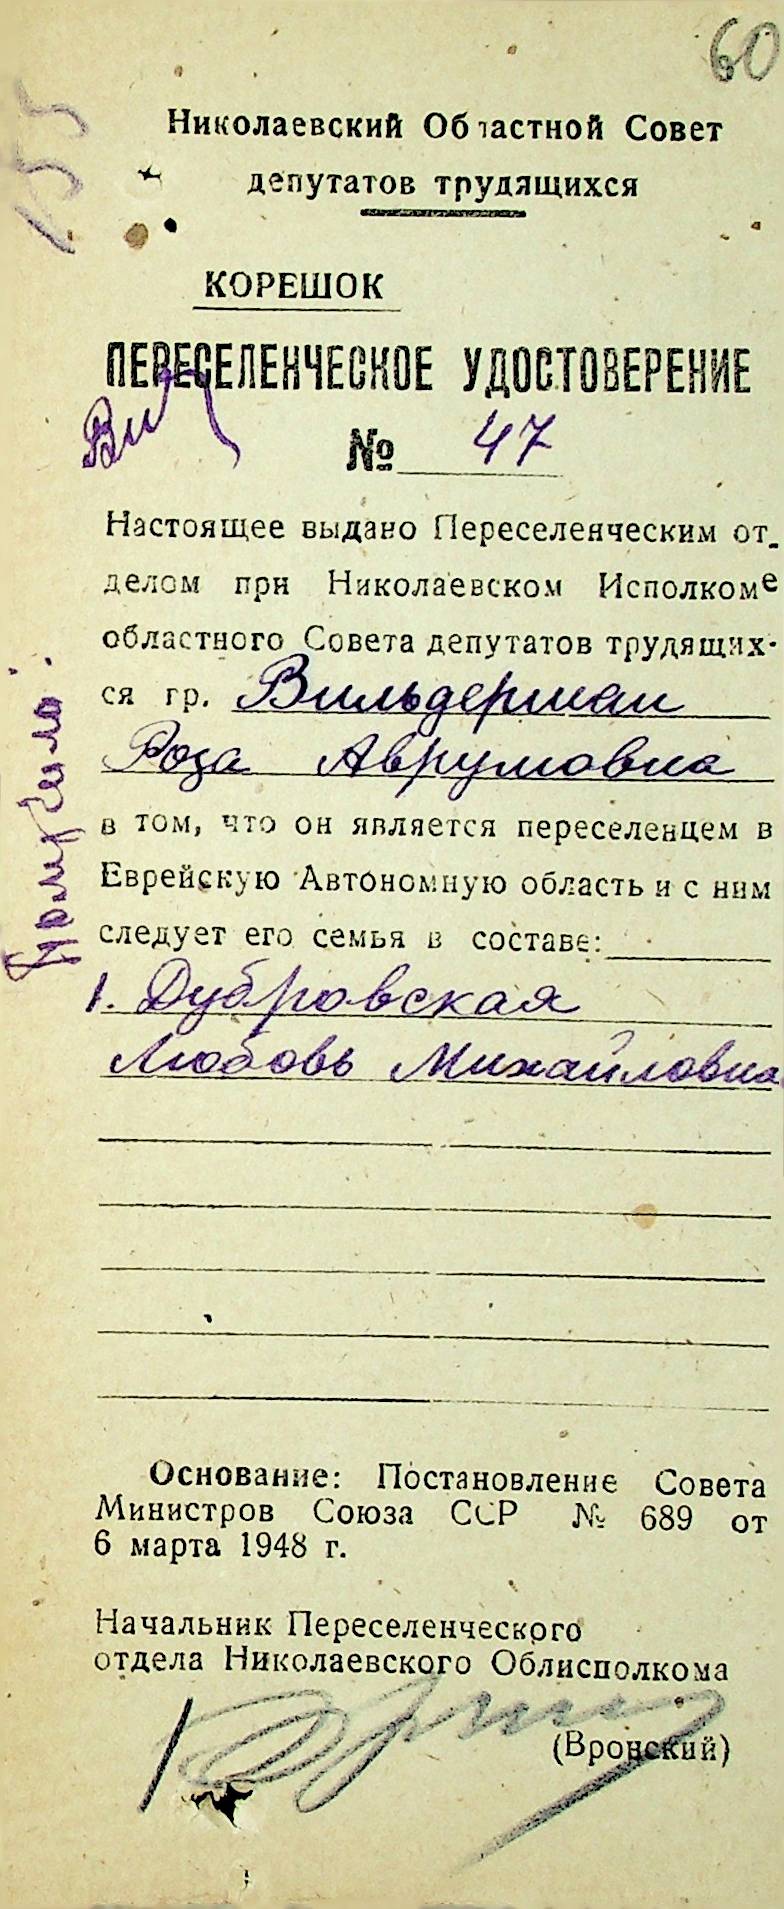 60
155
Николаевский Областной Совет
депутатов трудящихся
КОРЕШОК
ПЕРЕСЕЛЕНЧЕСКОЕ УДОСТОВЕРЕНИЕ
№ 47
Настоящее выдано Переселенческим от-
делом при Николаевском Исполкоме
областного Совета депутатов трудящих-
ся гр. Вильдерман
Роза Аврумовна
в том, что он является переселенцем в
Еврейскую Автономную область и с ним
следует его семья в составе:
1. Дубровская
Любовь Михайловна
Получила:
Основание: Постановление Совета
Министров Союза ССР № 689 от
6 марта 1948 г.
Начальник Переселенческого
отдела Николаевского Облисполкома
(Вронский)